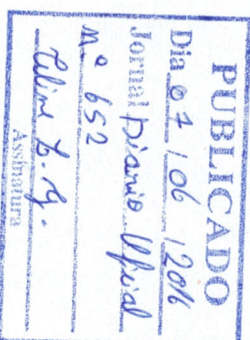 PUBLICADO
Dia 07 / 06 / 2016
Jornal Diario Oficial
Nº 652
Assinatura